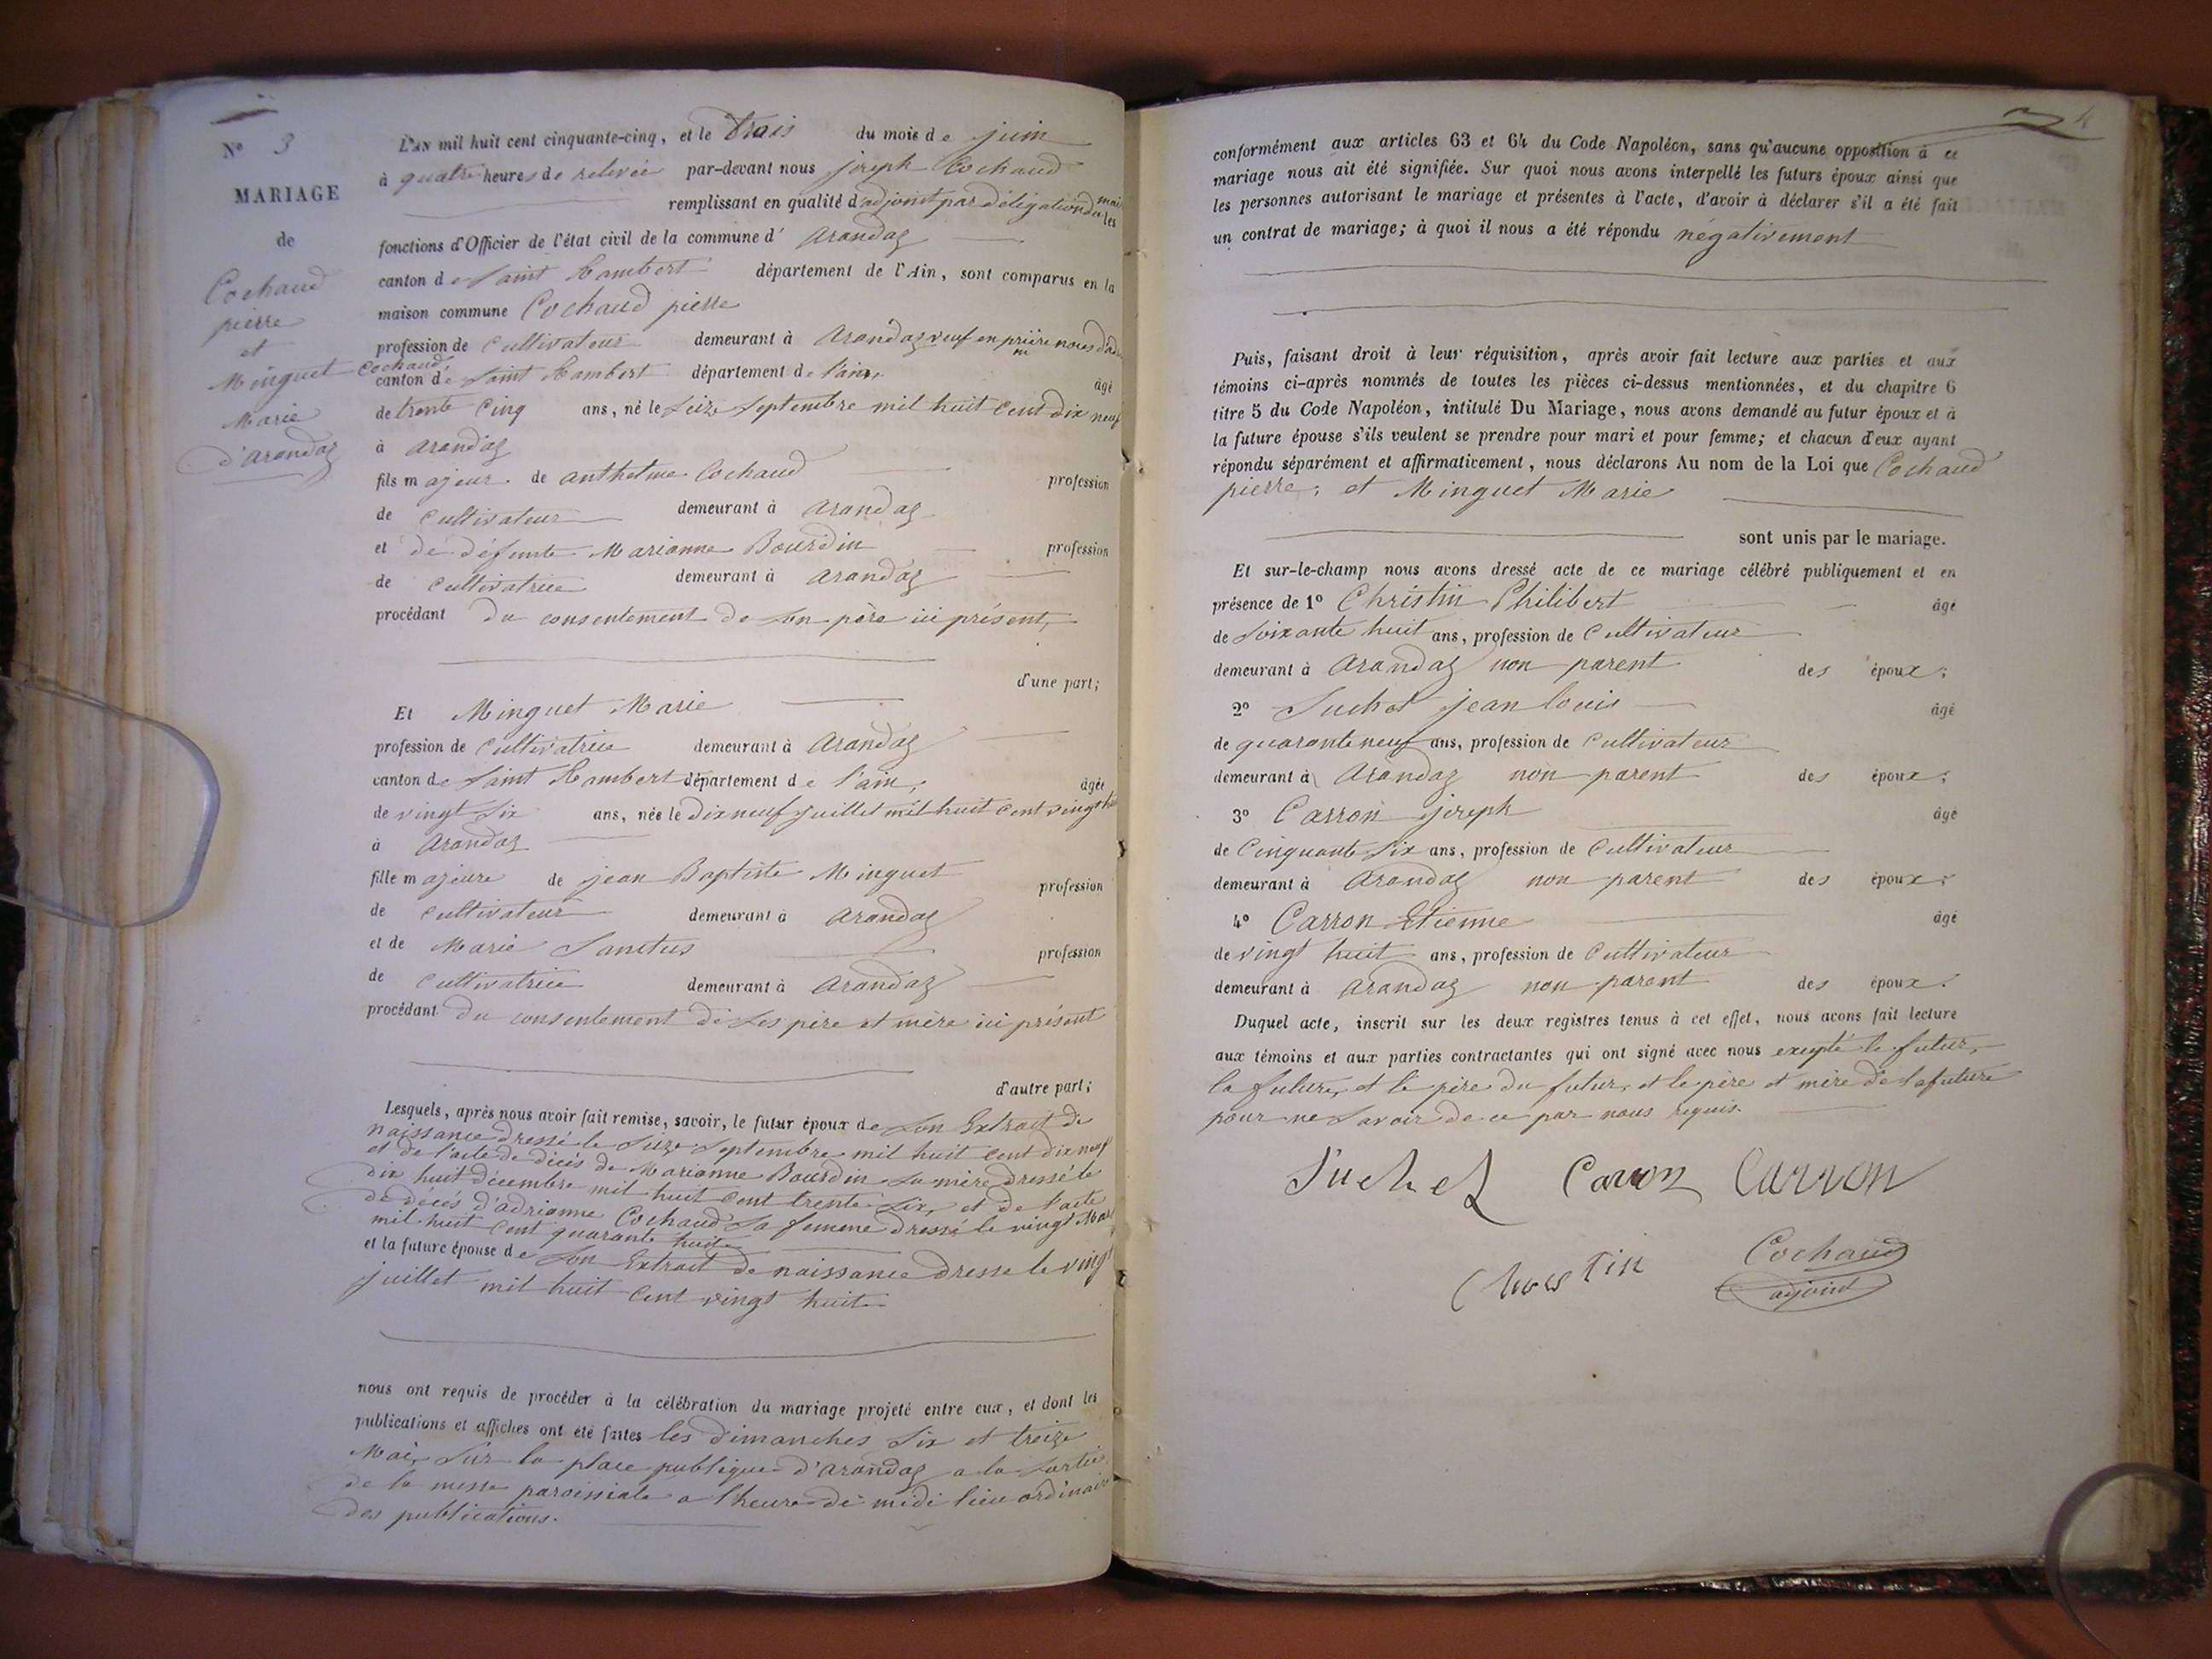 N° 3
MARIAGE
de
Cochaud
pierre
et
Minguet
Marie
d'arandaz
L'an mil huit cent cinquante-cinq, et le trois du mois de juin
à quatre heures de relevée par-devant nous joseph Cochaud
remplissant en qualité d'adjoint par délégation du maire les
fonctions d'Officier de l'état civil de la commune d' arandaz
canton de Saint Rambert département de l'Ain, sont comparus en la
maison commune Cochaud pierre
profession de cultivateur demeurant à arandaz veuf en
Cochaud,
canton de Saint Rambert département de l'ain, âgé
de trente cinq ans, né le Seize Septembre mil huit cent dix neuf
à arandaz
fils majeur de anthelme Cochaud profession
de cultivateur demeurant à arandaz
et de défunte Marianne Bourdin profession
de cultivatrice demeurant à arandaz
procédant du consentement de son père ici présent,
d'une part;
Et Minguet Marie
profession de cultivatrice demeurant à arandaz
canton de Saint Rambert département de l'ain, âgée
de vingt Six ans, née le Dix neuf juillet mil huit cent vingt huit
à arandaz
fille majeure de jean Baptiste Minguet profession
de cultivateur demeurant à arandaz
et de Marie Sanctus profession
de cultivatrice demeurant à arandaz
procédant du consentement de ses père et mère ici présent
d'autre part;
Lesquels, après nous avoir fait remise, savoir, le futur époux de son Extrait de
naissance dressé le Seize Septembre mil huit cent dix neuf
et de l'acte de décès de Marianne Bourdin sa mère dressé le
dix huit décembre mil huit cent trente Six, et de l'acte
de décès d'adrianne Cochaud sa femme dressé le vingt Mai
mil huit cent quarante huit
et la future épouse de son Extrait de naissance dressé le vingt
juillet mil huit cent vingt huit
nous ont requis de procéder à la célébration du mariage projeté entre eux, et dont les
publications et affiches ont été faites les dimanches Six et treize
Mai, Sur la place publique d'arandaz a la Sortie
de la messe paroissiale a l'heure de midi lieu ordinaire
des publications.
4
conformément aux articles 63 et 64 du Code Napoléon, sans qu'aucune opposition à ce
mariage nous ait été signifiée. Sur quoi nous avons interpellé les futurs époux ainsi que
les personnes autorisant le mariage et présentes à l'acte, d'avoir à déclarer s'il a été fait
un contrat de mariage; à quoi il nous a été répondu négativement
Puis, faisant droit à leur réquisition, après avoir fait lecture aux parties et aux
témoins ci-après nommés de toutes les pièces ci-dessus mentionnées, et du chapitre 6
titre 5 du Code Napoléon, intitulé Du Mariage, nous avons demandé au futur époux et à
la future épouse s'ils veulent se prendre pour mari et pour femme; et chacun d'eux ayant
répondu séparément et affirmativement, nous déclarons Au nom de la Loi que Cochaud
pierre, et Minguet Marie
sont unis par le mariage.
Et sur-le-champ nous avons dressé acte de ce mariage célébré publiquement et en
présence de 1° Christin Philibert âgé
de Soixante huit ans, profession de Cultivateur
demeurant à arandaz non parent des époux;
2° Suchet jean louis âgé
de quarante neuf ans, profession de Cultivateur
demeurant à Arandaz non parent des époux;
3° Carron joseph âgé
de Cinquante Six ans, profession de Cultivateur
demeurant à Arandaz non parent des époux;
4° Carron Etienne âgé
de vingt huit ans, profession de Cultivateur
demeurant à arandaz non parent des époux.
Duquel acte, inscrit sur les deux registres tenus à cet effet, nous avons fait lecture
aux témoins et aux parties contractantes qui ont signé avec nous excepté le futur,
la future, et le père du futur, et le père et mère de la future
pour ne savoir de ce par nous requis.
Suchet Caron Carron
Cochaud
adjoint